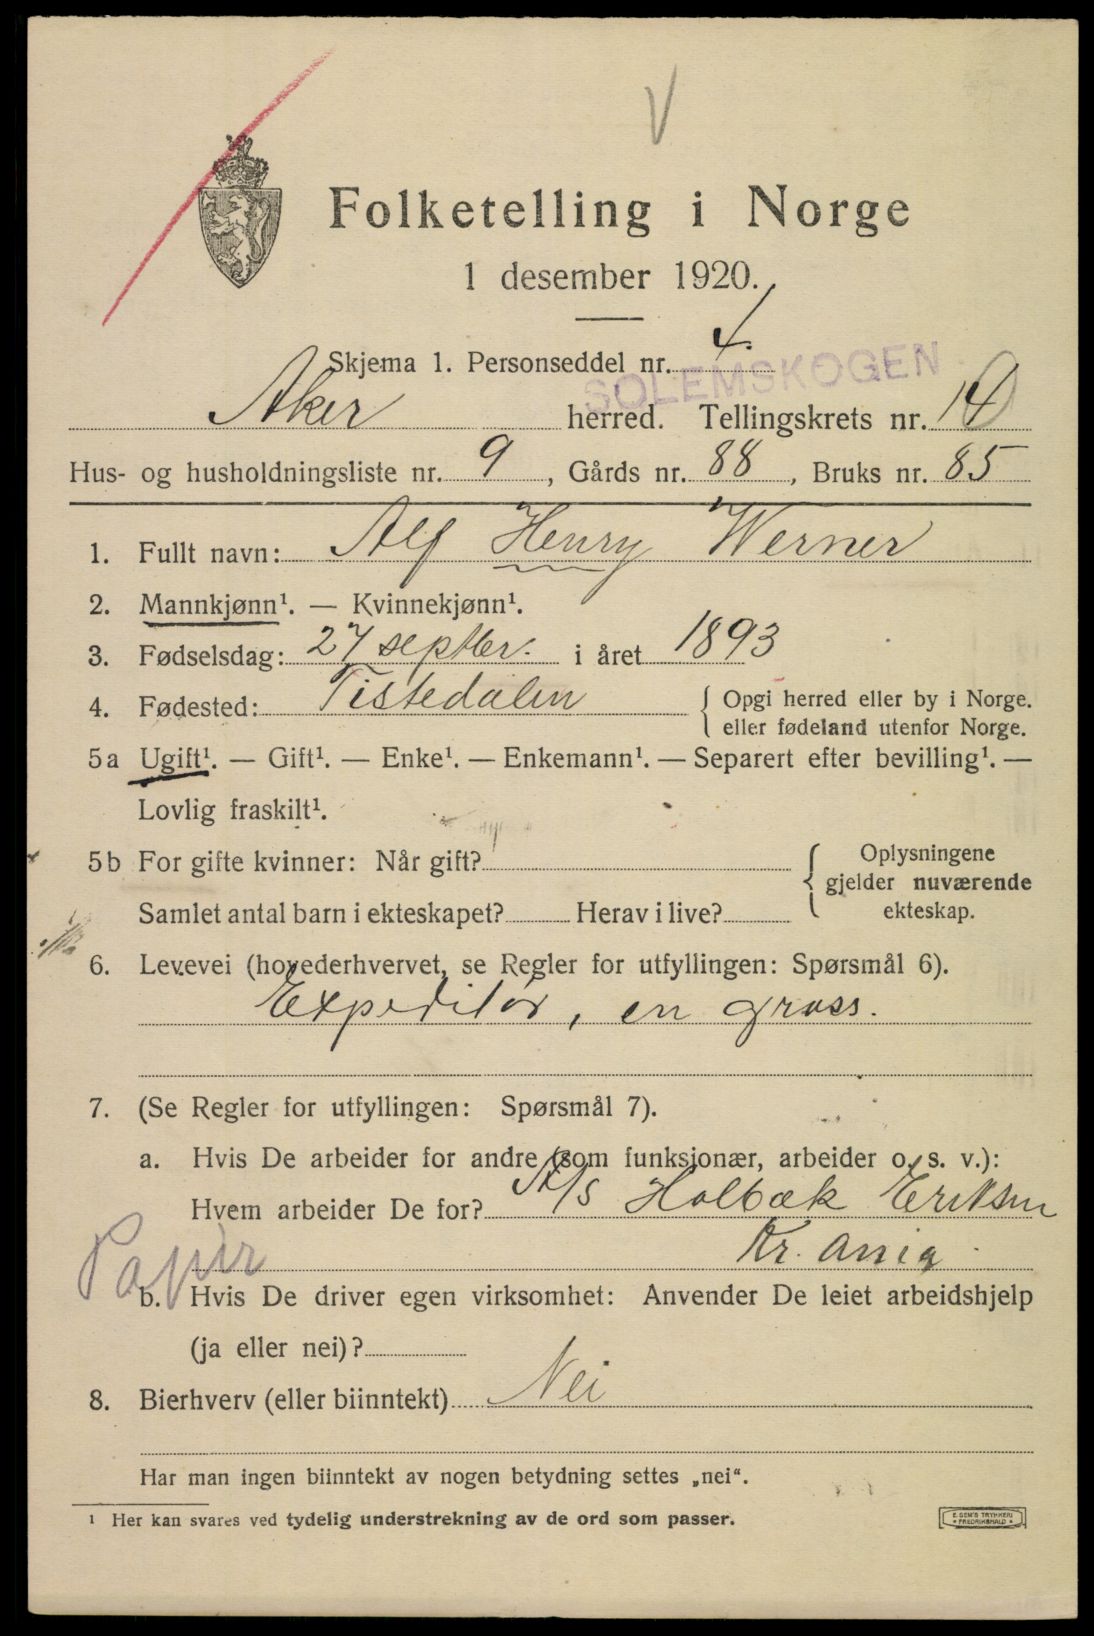 V
Folketelling i Norge
1 desember 1920.
Skjema 1. Personseddel nr. 4.
SOLEMSKOGEN
Aker herred. Tellingskrets nr. 14
Hus- og husholdningsliste nr. 9, Gårds nr. 88, Bruks nr. 85
1. Fullt navn: Alf Henry Werner
2. Mannkjønn¹. — Kvinnekjønn¹.
3. Fødselsdag: 27 septber. i året 1893
4. Fødested: Tistedalen { Opgi herred eller by i Norge.
eller fødeland utenfor Norge.
5a Ugift¹. — Gift¹. — Enke¹. — Enkemann¹. — Separert efter bevilling¹. —
Lovlig fraskilt¹.
5b For gifte kvinner: Når gift? { Oplysningene
gjelder nuværende
Samlet antal barn i ekteskapet? Herav i live? ekteskap.
6. Levevei (hovederhvervet, se Regler for utfyllingen: Spørsmål 6).
Expeditør, en gross.
7. (Se Regler for utfyllingen: Spørsmål 7).
a. Hvis De arbeider for andre (som funksjonær, arbeider o. s. v.):
Hvem arbeider De for? A/S Holbæk Eriksen
Kr. ania
Papir
b. Hvis De driver egen virksomhet: Anvender De leiet arbeidshjelp
(ja eller nei)?
8. Bierhverv (eller biinntekt) Nei
Har man ingen biinntekt av nogen betydning settes „nei“.
¹ Her kan svares ved tydelig understrekning av de ord som passer.
E. SEM'S TRYKKERI
* FREDRIKSHALD *